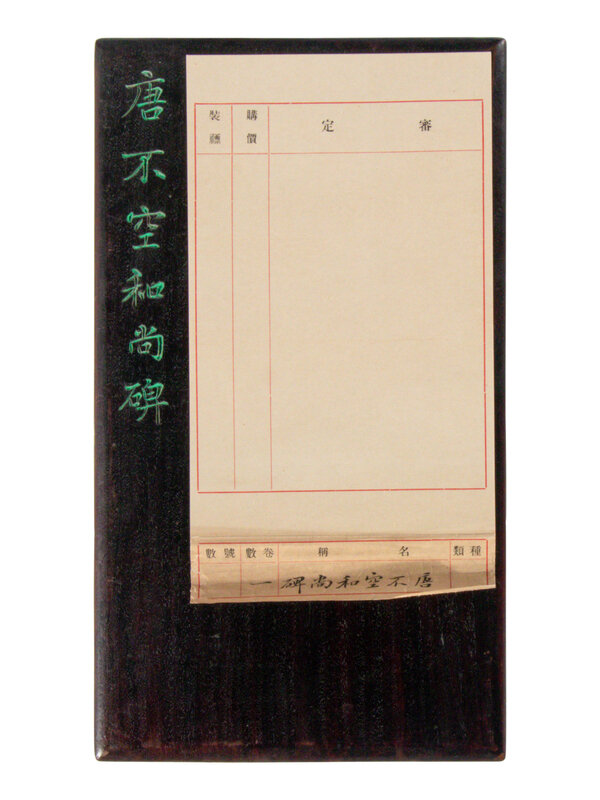 唐不空和尚碑
審定
購價
裝
種類
名稱
卷數
號數
唐不空和尚碑
一